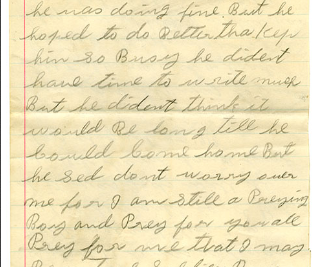 he was doing fine. But he
hoped to do Better tha Kep
him So Busy he dident
have time to write much
But he dident think it
would Be long till he
Could Come home But
he Sed dont worry over
me for I am Still a Preying
Boy and Prey for you all
Prey for me that I may